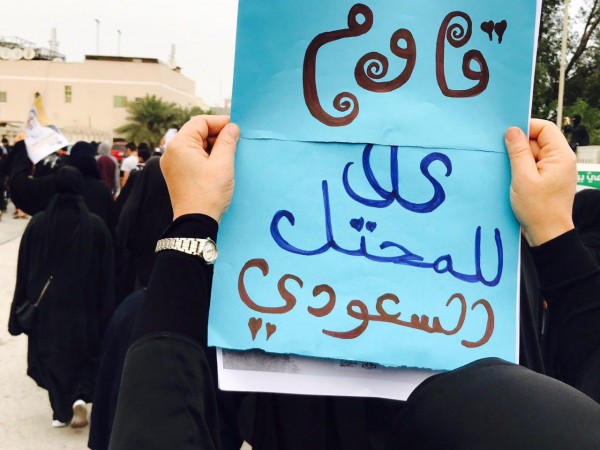 قاوم
كلا
للمحتل
السعودي